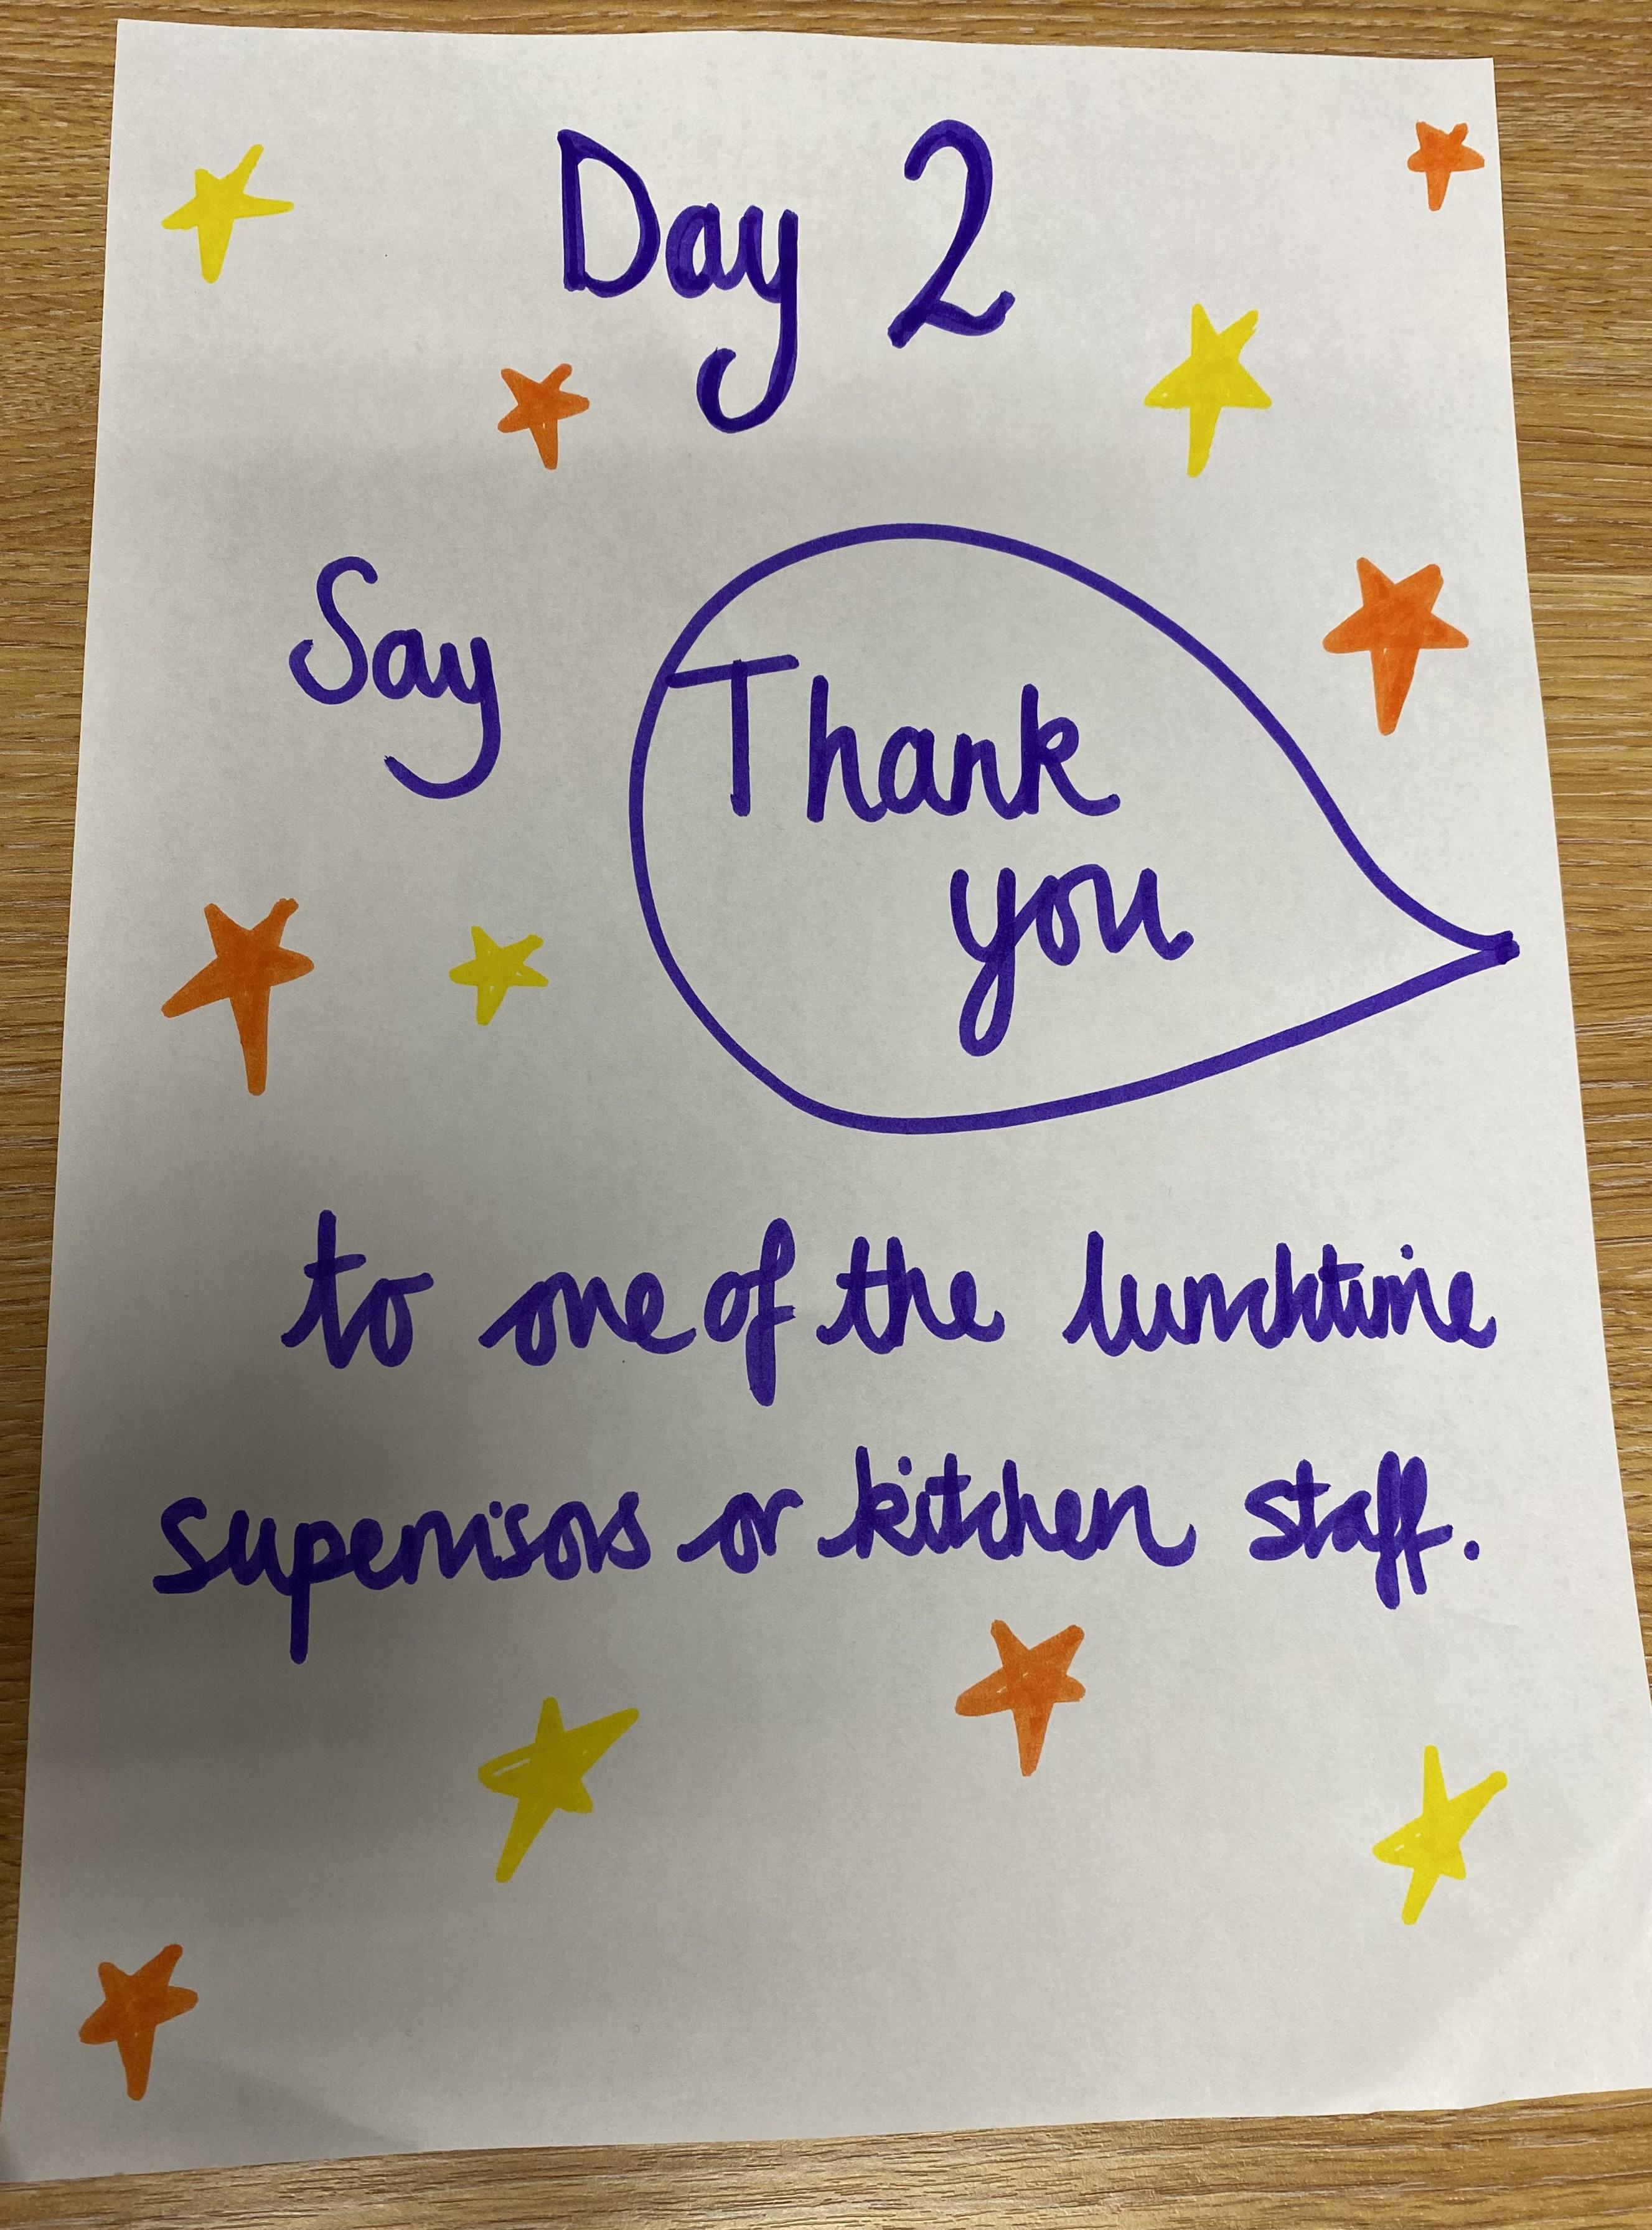 Day 2
Say
Thank
you
to one of the lunchtime
supervisors or kitchen staff.